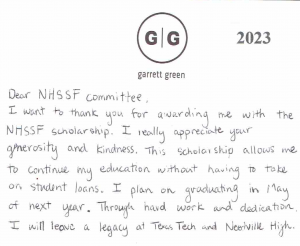 G|G
2023
garrett green
Dear NHSSF committee,
I want to thank you for awarding me with the
NHSSF scholarship. I really appreciate your
generosity and kindness. This scholarship allows me
to continue my education without having to take
on student loans. I plan on graduating in May
of next year. Through hard work and dedication,
I will leave a legacy at Texas Tech and Neetville High.